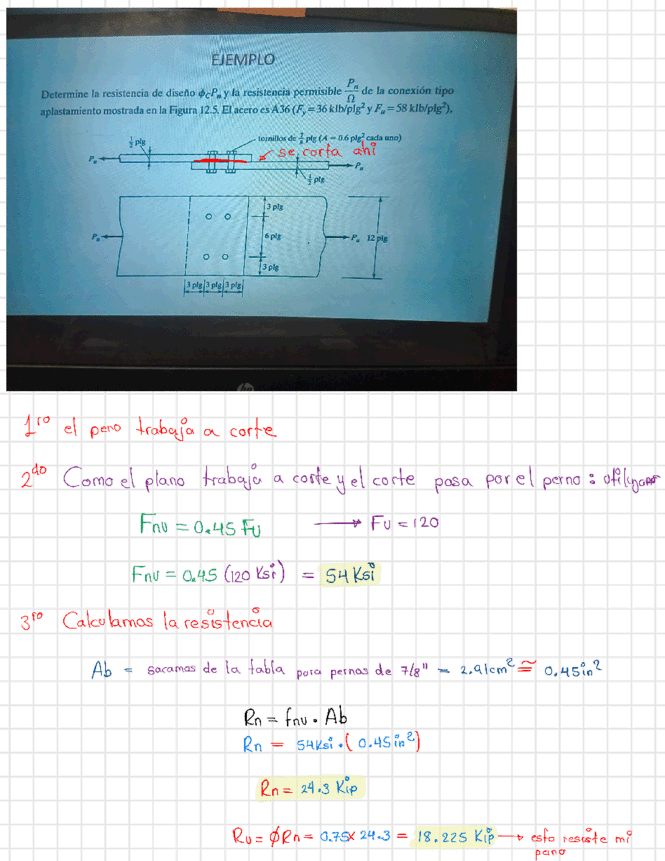 EJEMPLO
Determine la resistencia de diseño ϕcPn y la resistencia permisible Pn/Ω de la conexión tipo
aplastamiento mostrada en la Figura 12.5. El acero es A36 (Fy = 36 klb/plg² y Fu = 58 klb/plg²).
tornillos de 7/8 plg (A = 0.6 plg² cada uno)
1/2 plg
se corta ahi
Pu
Pu
1/2 plg
3 plg
Pu
6 plg
Pu
12 plg
3 plg
3 plg 3 plg 3 plg
hp
1ro el peno trabaja a corte
2do Como el plano trabaja a corte y el corte pasa por el perno : utilizar
Fnu = 0.45 Fu → Fu = 120
Fnu = 0.45 (120 Ksi) = 54 Ksi
3ro Calculamos la resistencia
Ab = sacamos de la tabla para pernos de 7/8" = 2.91cm² ≅ 0.45in²
Rn = fnu · Ab
Rn = 54Ksi · (0.45in²)
Rn = 24.3 Kip
Ru = ϕRn = 0.75 x 24.3 = 18.225 Kip → esto resiste mi
pano